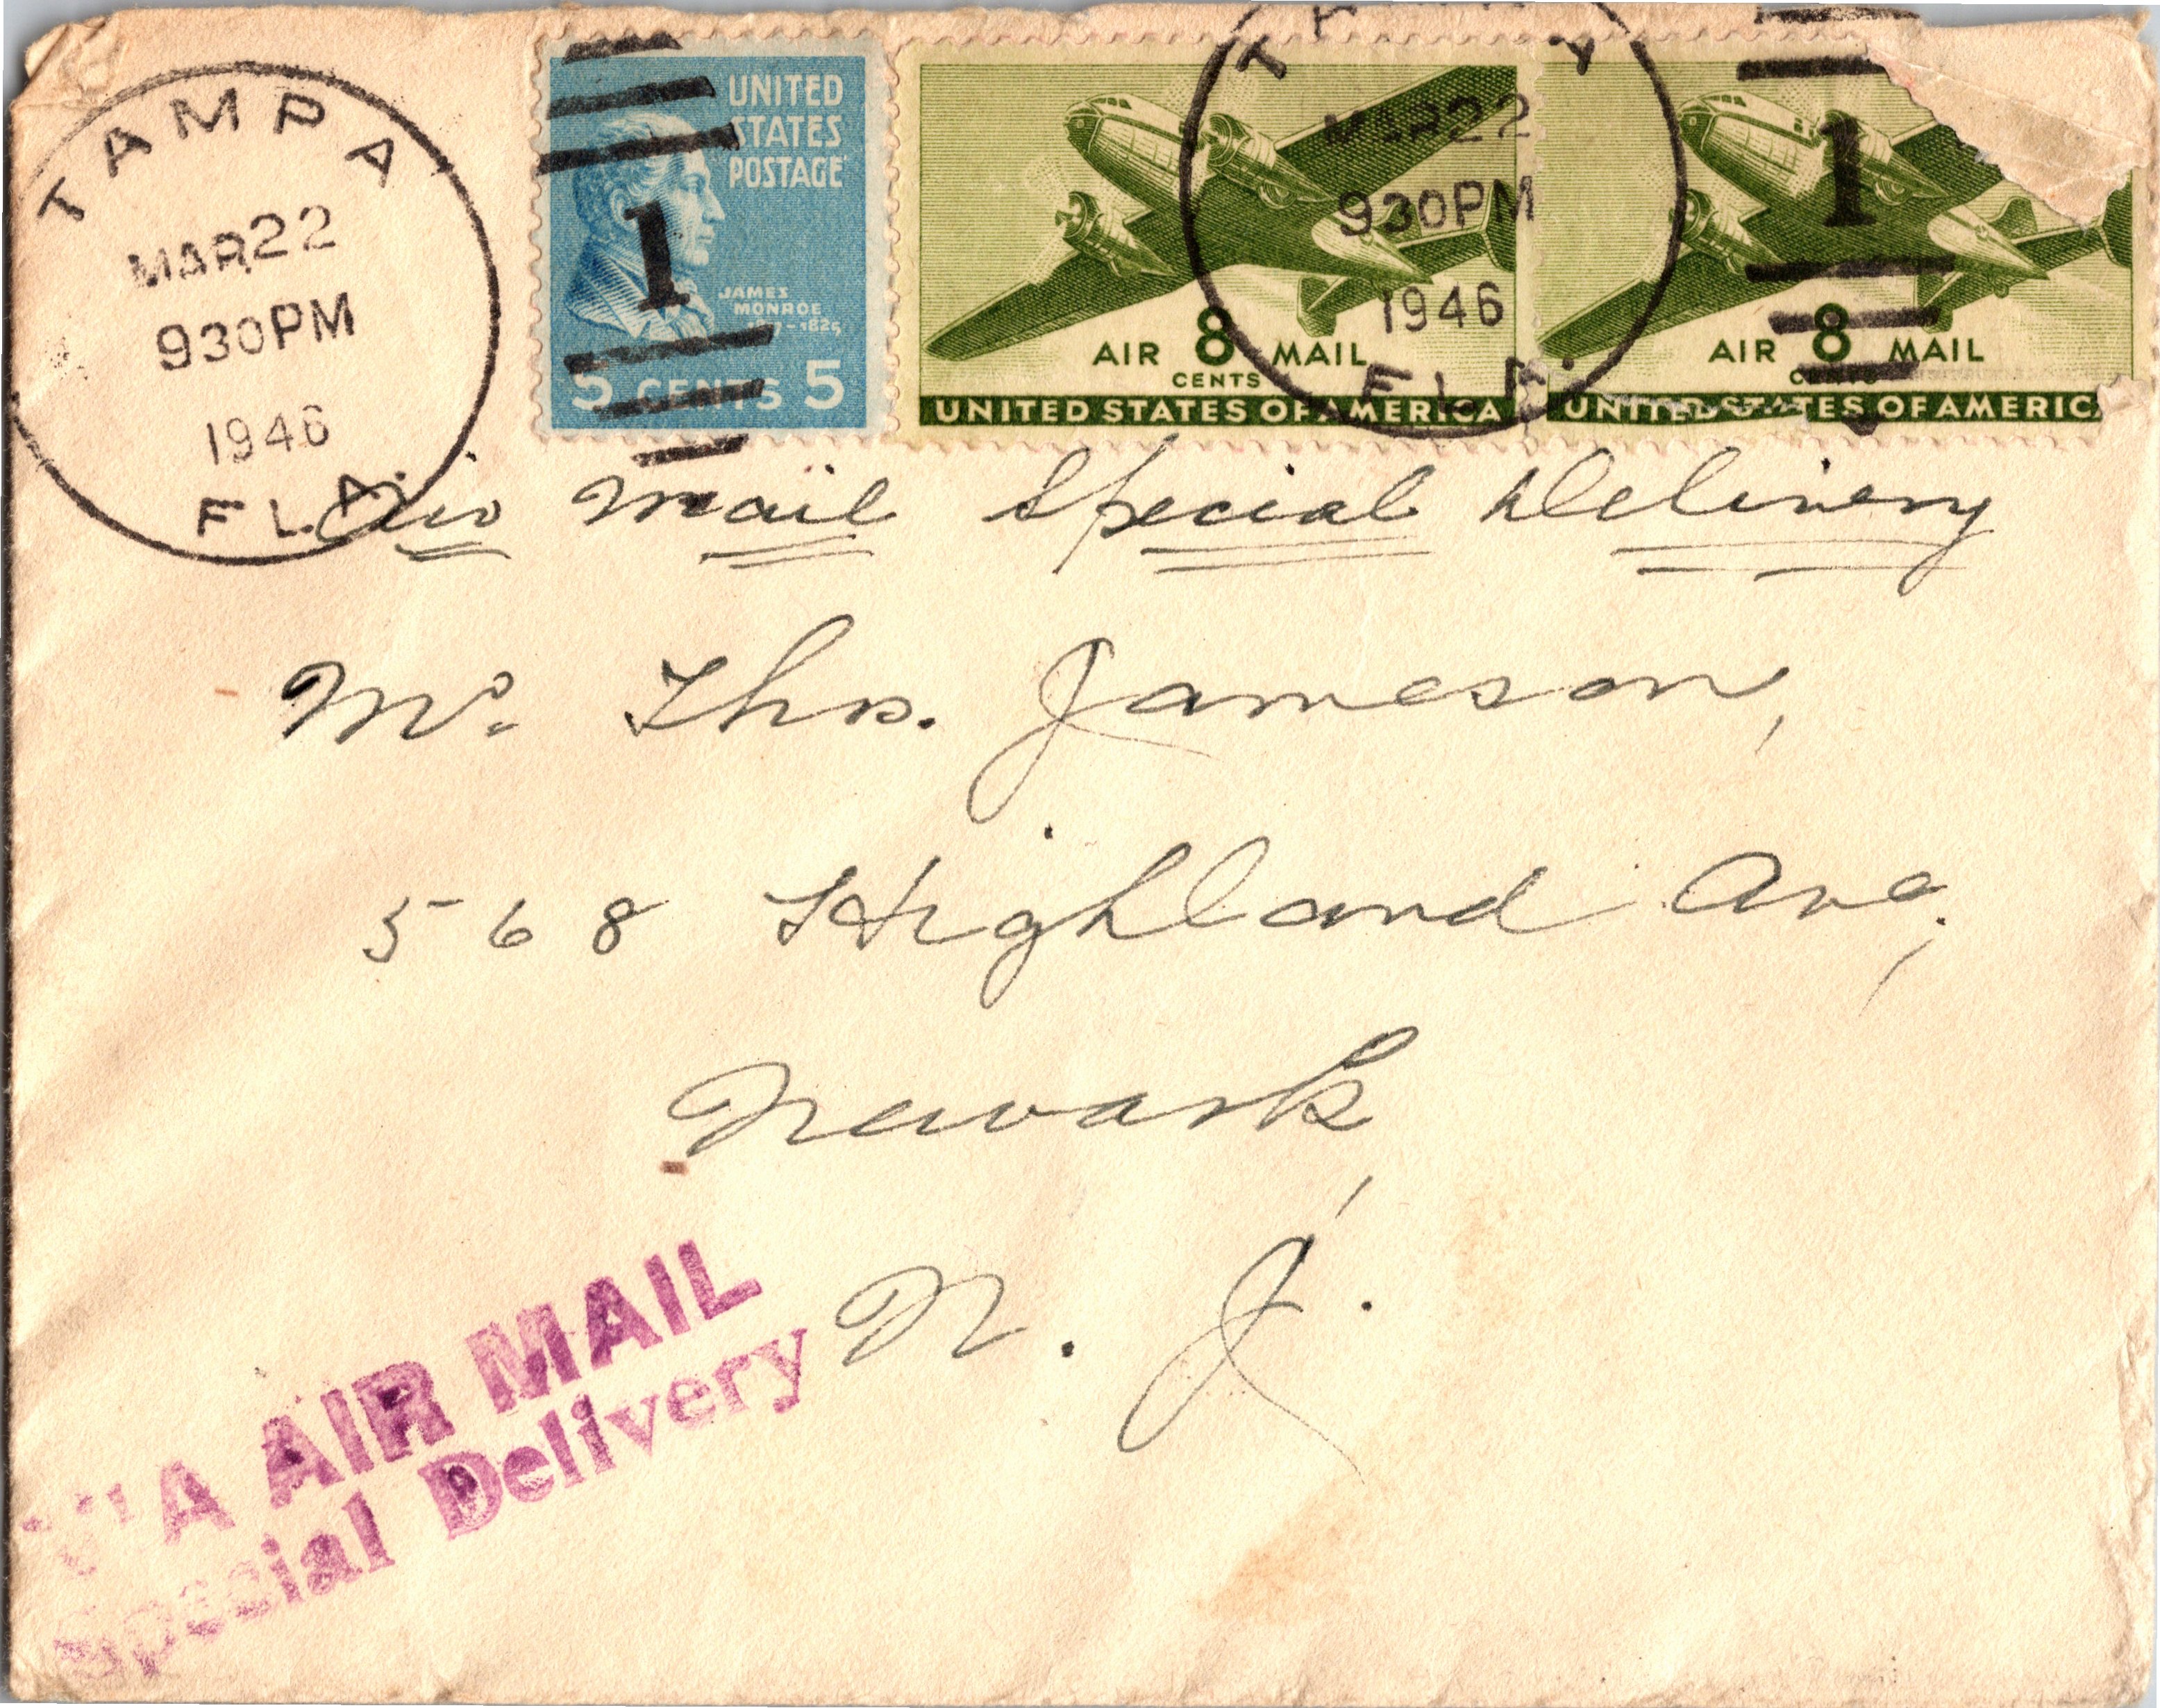 TAMPA
MAR 22
930PM
1946
FLA.
UNITED
STATES
POSTAGE
1
JAMES
MONROE
-1825
5 CENTS 5
AIR 8 MAIL
CENTS
UNITED STATES OF AMERICA
MAR 22
930PM
1946
FLA.
1
AIR 8 MAIL
CENTS
UNITED STATES OF AMERIC
Air Mail Special Delivery
Mr. Thos. Jameson,
568 Highland Ave,
Newark,
N. J.
VIA AIR MAIL
Special Delivery